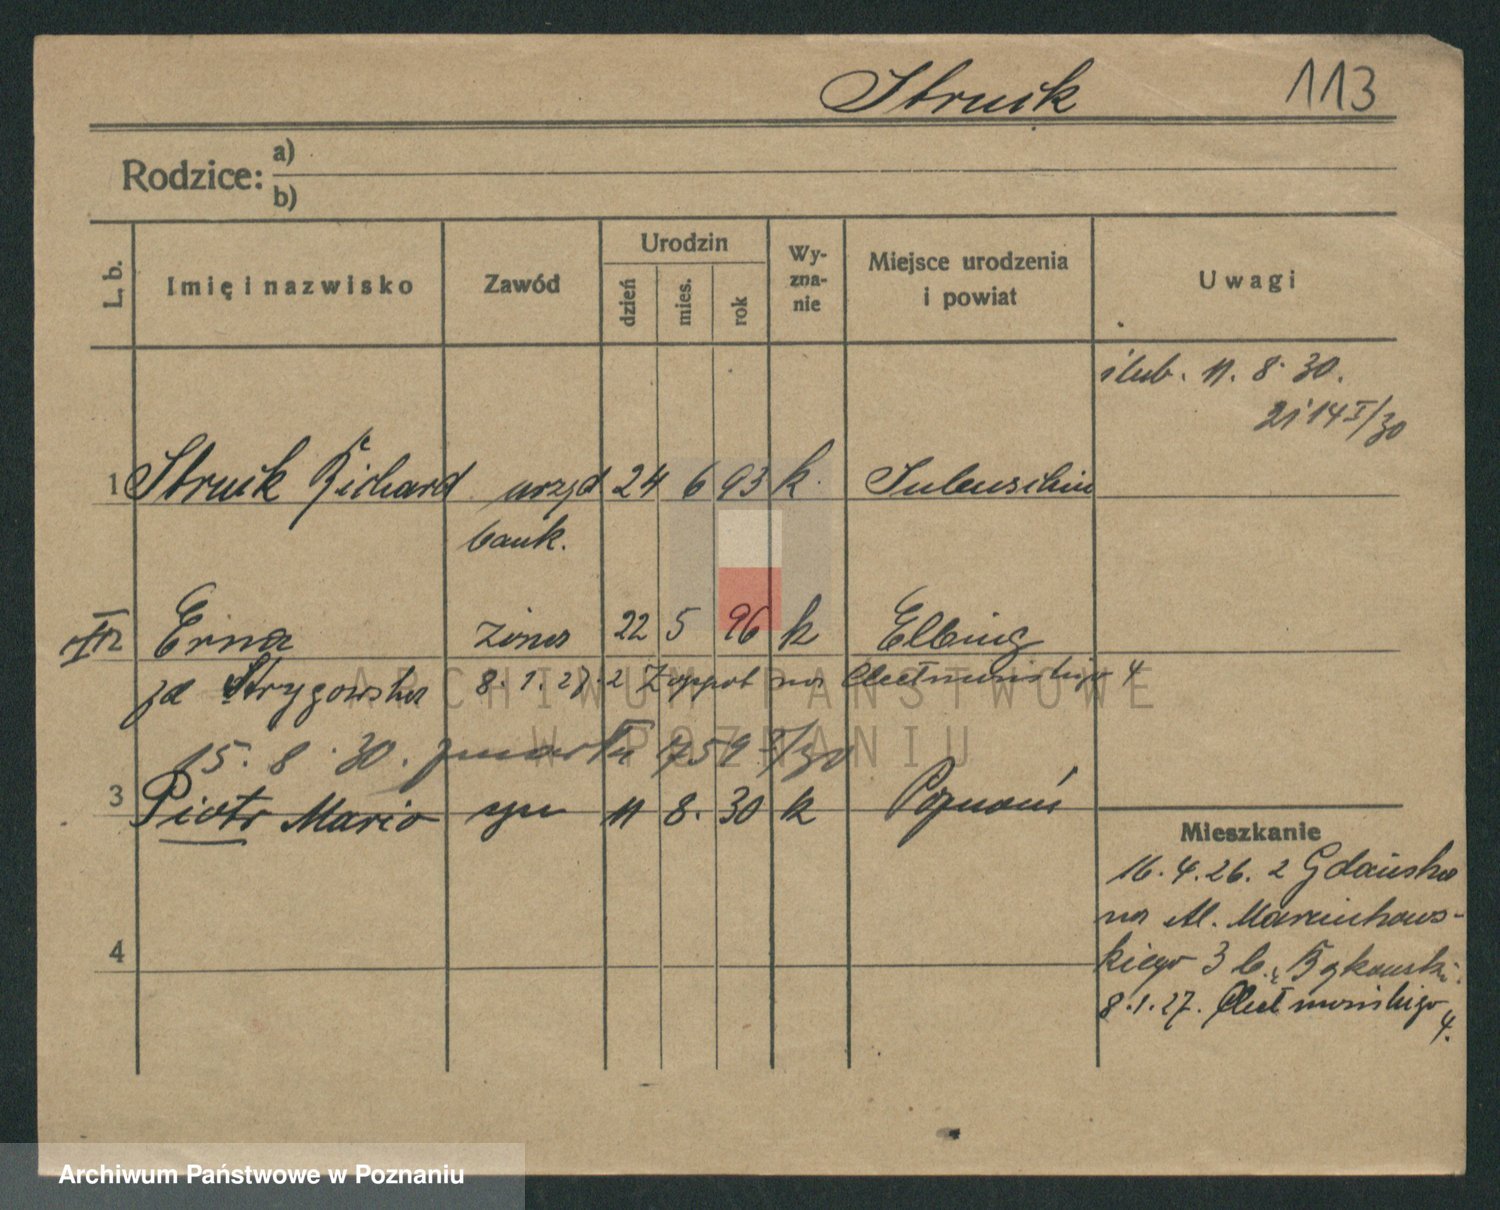 Struik 113
Rodzice: a)
b)
L. b. Imię i nazwisko Zawód Urodzin Wyznanie Miejsce urodzenia i powiat Uwagi
dzień mies. rok
11. 8. 30.
14 I/30
1 Struik Richard urzęd 24 6 93 k.
bank.
Erna żona 22 5 96 k Elbing
zd Strygowska 8.1.27. z Zoppot na Chełmońskiego 4
15. 8. 30.
3 Piotr Mario syn 11 8. 30 k Poznań
Mieszkanie
16.4.26. z Gdańska
na Al. Marcinkows-
kiego 3 b.
8.1.27. Chełmońskiego 4.
4
ARCHIWUM PAŃSTWOWE
W POZNANIU
Archiwum Państwowe w Poznaniu